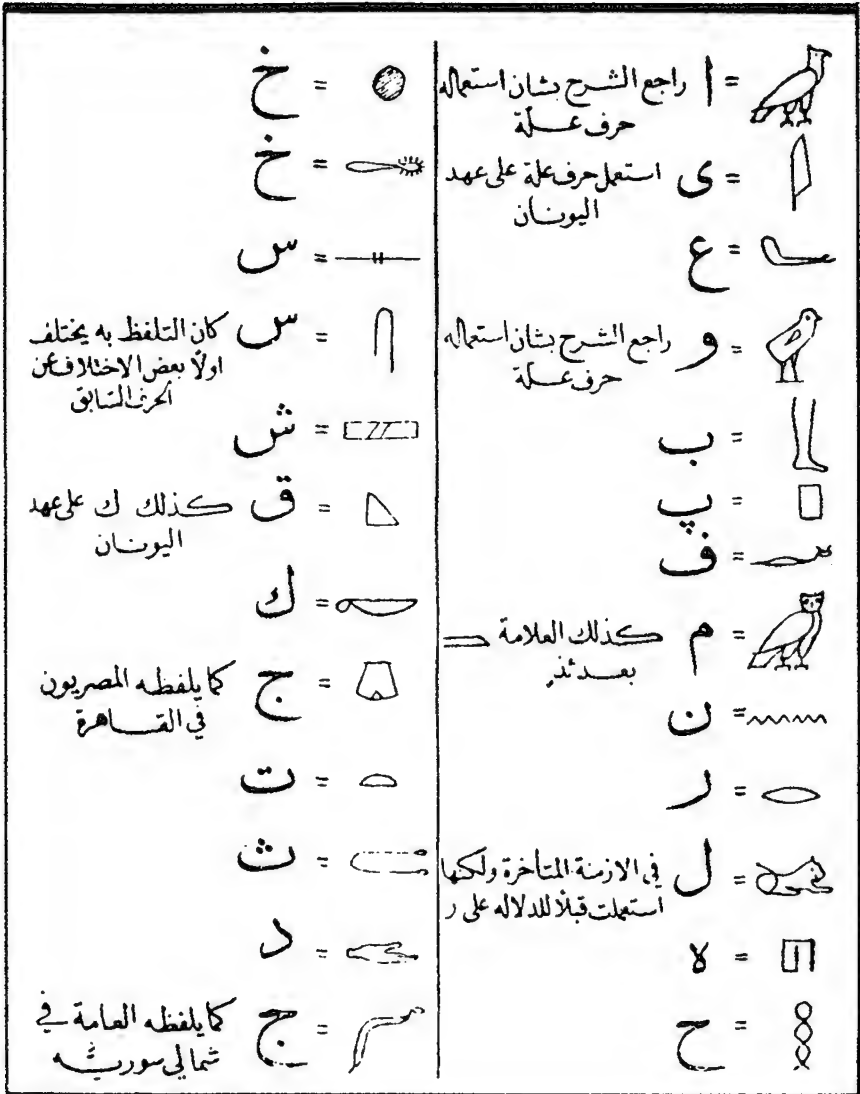 = ا راجع الشرح بشان استعماله
حرف علّة
= ى استعمل حرف علة على عهد
اليونان
= ع
= و راجع الشرح بشان استعماله
حرف علّة
= ب
= پ
= ف
= م كذلك العلامة
بعدئذٍ
= ن
= ر
= ل في الازمنة المتأخرة ولكنها
استعملت قبلًا للدلاله على ر
= ه
= ح
= خ
= خ
= س
= س كان التلفظ به يختلف
اولًا بعض الاختلاف عن
الحرف السابق
= ش
= ق كذلك ك على عهد
اليونان
= ك
= ج كما يلفظه المصريون
في القاهرة
= ت
= ث
= د
= ج كما يلفظه العامة في
شمالي سوريّه